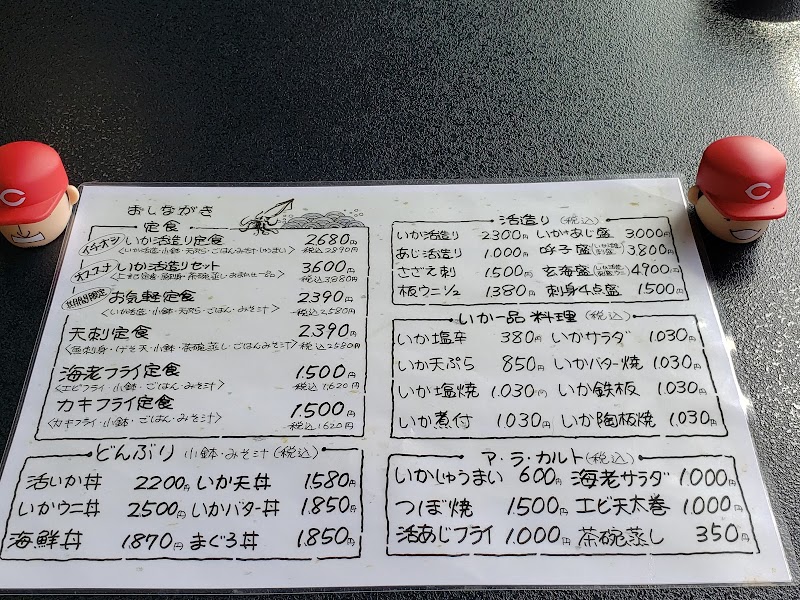 おしながき
定食
イチオシ いか活造り定食 2680円
<いか活造・小鉢・天ぷら・ごはん・みそ汁・しゅうまい> 税込2890円
オススメ いか活造りセット 3600円
税込3,880円
期間限定 お気軽定食 2390円
<いか活造・小鉢・天ぷら・ごはん・みそ汁> 税込2580円
天刺定食 2390円
<魚刺身・げそ天・小鉢・茶碗蒸し・ごはんみそ汁> 税込2580円
海老フライ定食 1,500円
<エビフライ・小鉢・ごはん・みそ汁> 税込1,620円
カキフライ定食 1,500円
<カキフライ・小鉢・ごはん・みそ汁> 税込1620円
どんぶり 小鉢・みそ汁(税込)
活いか丼 2200円 いか天丼 1,580円
いかウニ丼 2500円 いかバター丼 1.850円
海鮮丼 1.870円 まぐろ丼 1.850円
活造り(税込)
いか活造り 2300円 いか・あじ盛 3000円
あじ活造り 1,000円 呼子盛 3,800円
さざえ刺 1,500円 玄海盛 4900円
板ウニ1/2 1380円 刺身4点盛 1500円
いか一品料理(税込)
いか塩辛 380円 いかサラダ 1.030円
いか天ぷら 850円 いかバター焼 1.030円
いか塩焼 1.030円 いか鉄板 1.030円
いか煮付 1.030円 いか陶板焼 1.030円
ア・ラ・カルト(税込)
いかしゅうまい 600円 海老サラダ 1.000円
つぼ焼 1.500円 エビ天太巻 1.000円
活あじフライ 1.000円 茶碗蒸し 350円